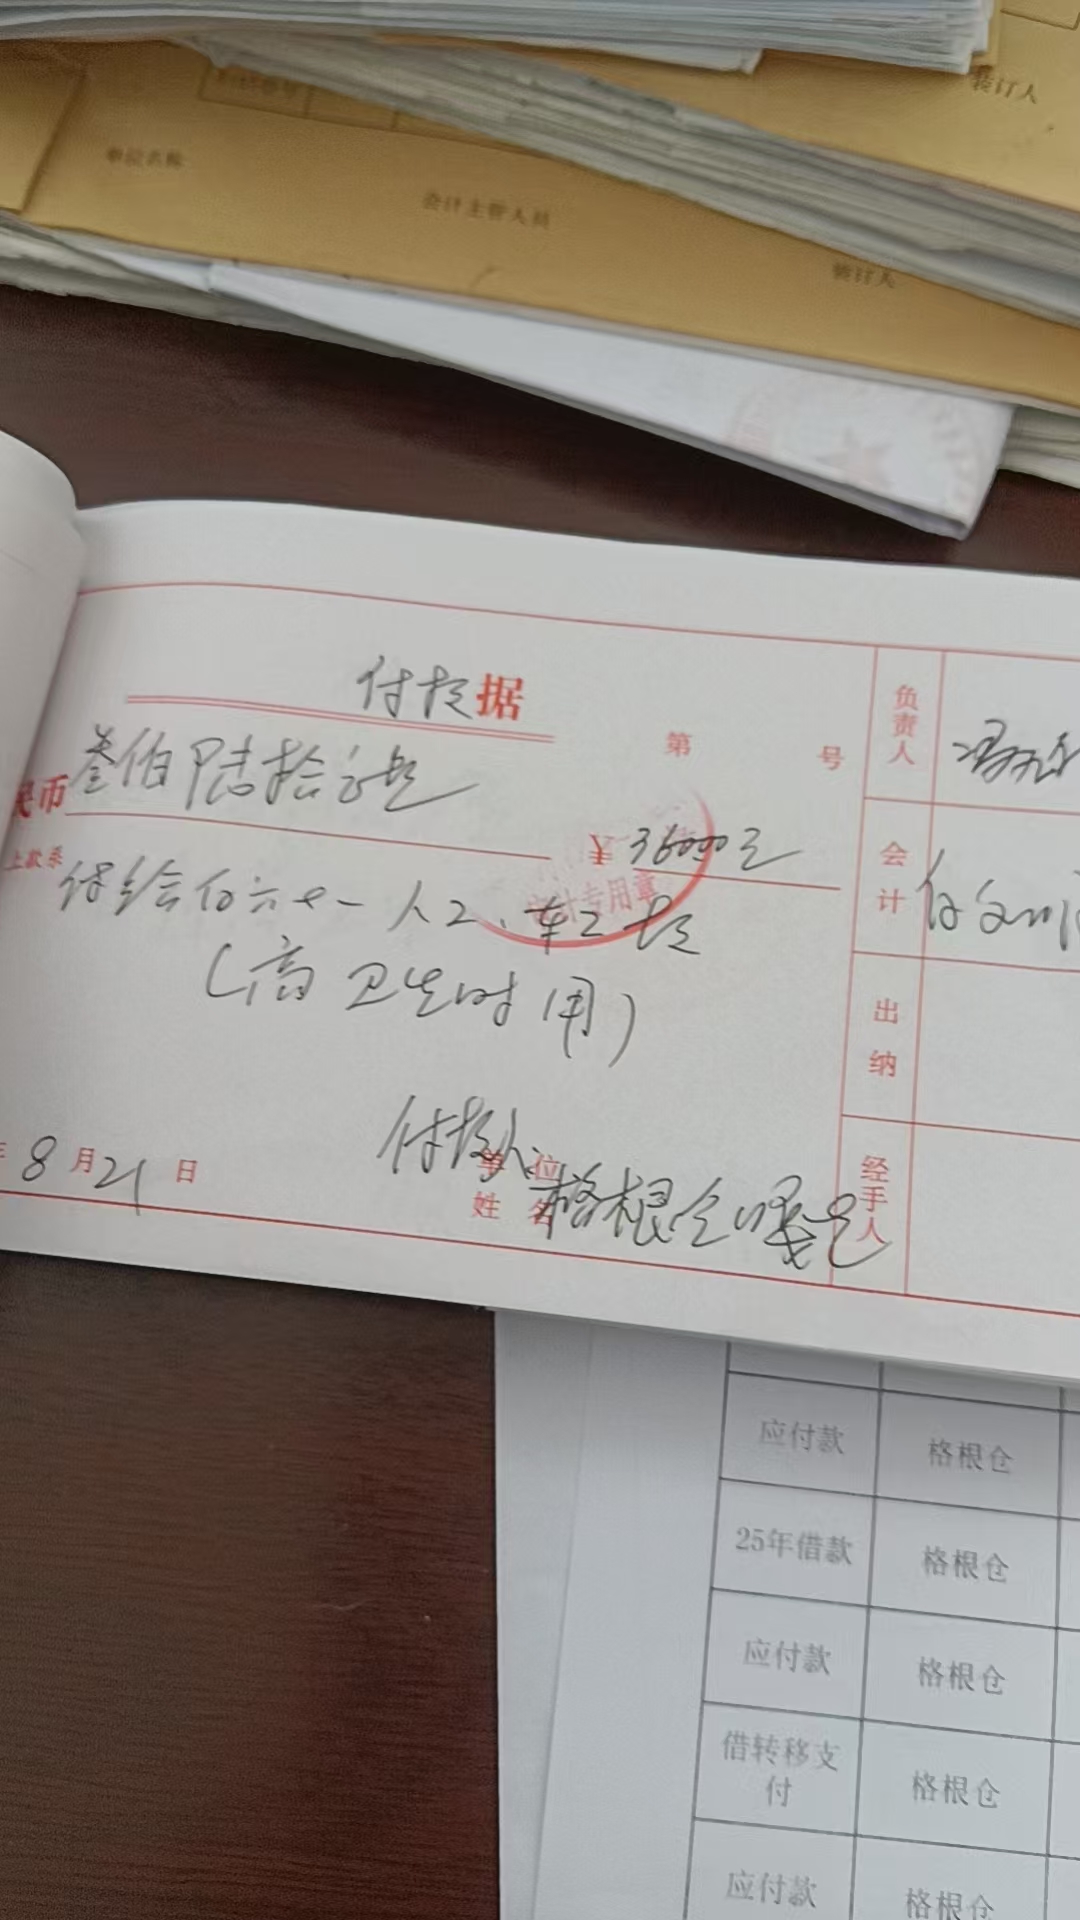 装订人
单位名称
会计主管人员
装订人
付款据
第 号
民币叁伯陆拾元是
¥36000元
上款系付给 人工、车工款
审计专用章
(高卫生时用)
8月21日
付款人
单位
姓名
格根仓嘎
负责人
会计
出纳
经手人
应付款 格根仓
25年借款 格根仓
应付款 格根仓
借转移支付 格根仓
应付款 格根仓